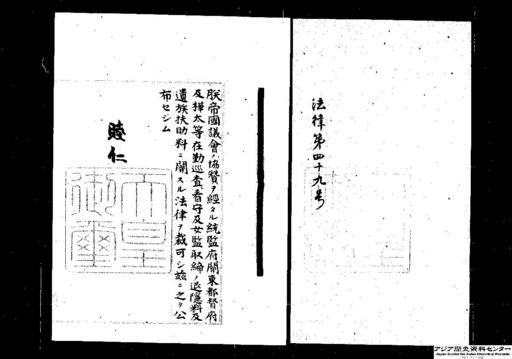 法律第四十九号
朕帝國議會ノ協賛ヲ經タル統監府關東都督府
及樺太等在勤巡査看守及女監取締ノ退隱料及
遺族扶助料ニ關スル法律ヲ裁可シ茲ニ之ヲ公
布セシム
睦仁
天皇
御璽
アジア歴史資料センター
Japan Center for Asian Historical Records